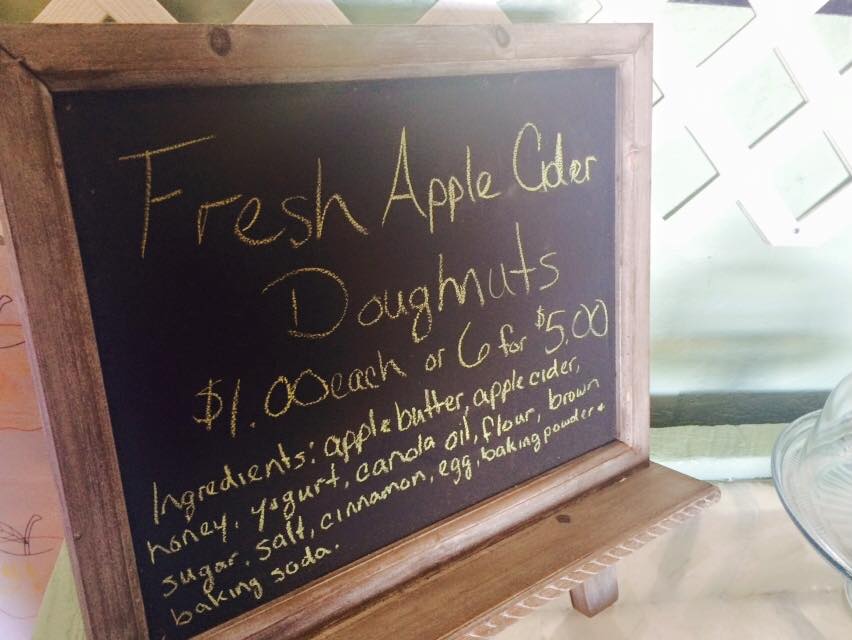 Fresh Apple Cider
Doughnuts
$1.00 each or 6 for $5.00
Ingredients: apple butter, apple cider,
honey, yogurt, canola oil, flour, brown
sugar, salt, cinnamon, egg, baking powder +
baking soda.